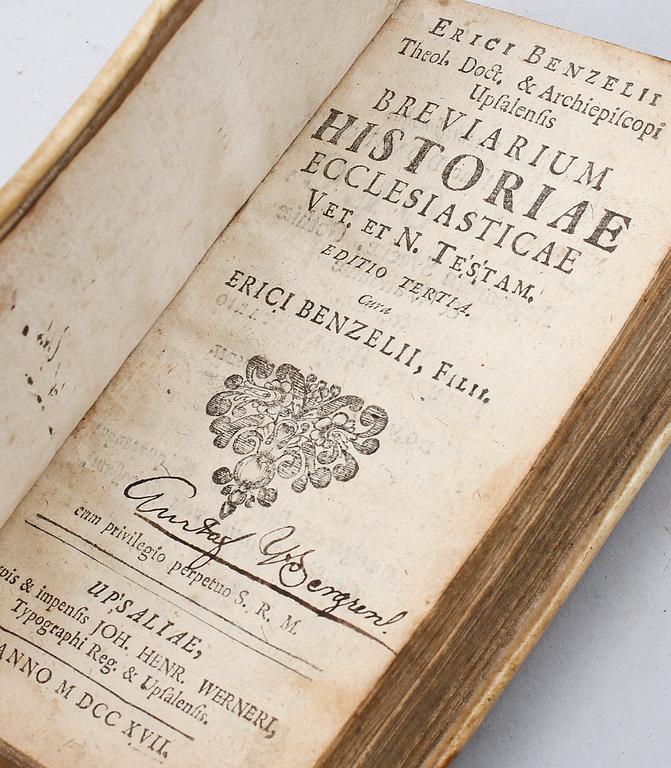 ERICI BENZELII
Theol. Doct. & Archiepiſcopi
Upſalenſis
BREVIARIUM
HISTORIAE
ECCLESIASTICAE
VET. ET N. TESTAM.
EDITIO TERTIA.
Cura
ERICI BENZELII, FILII.
Gustaf
cum privilegio perpetuo S. R. M.
UPSALIAE,
ypis & impenſis JOH. HENR. WERNERI,
Typographi Reg. & Upſalenſis.
ANNO M DCC XVII.